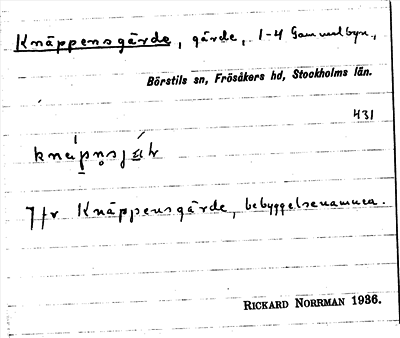 Knäppensgärde, gärde, 1-4 Gammelbyn.,
Börstils sn, Frösåkers hd, Stockholms län.
431
Jfr Knäppensgärde, bebyggelsenamnen.
RICKARD NORRMAN 1936.